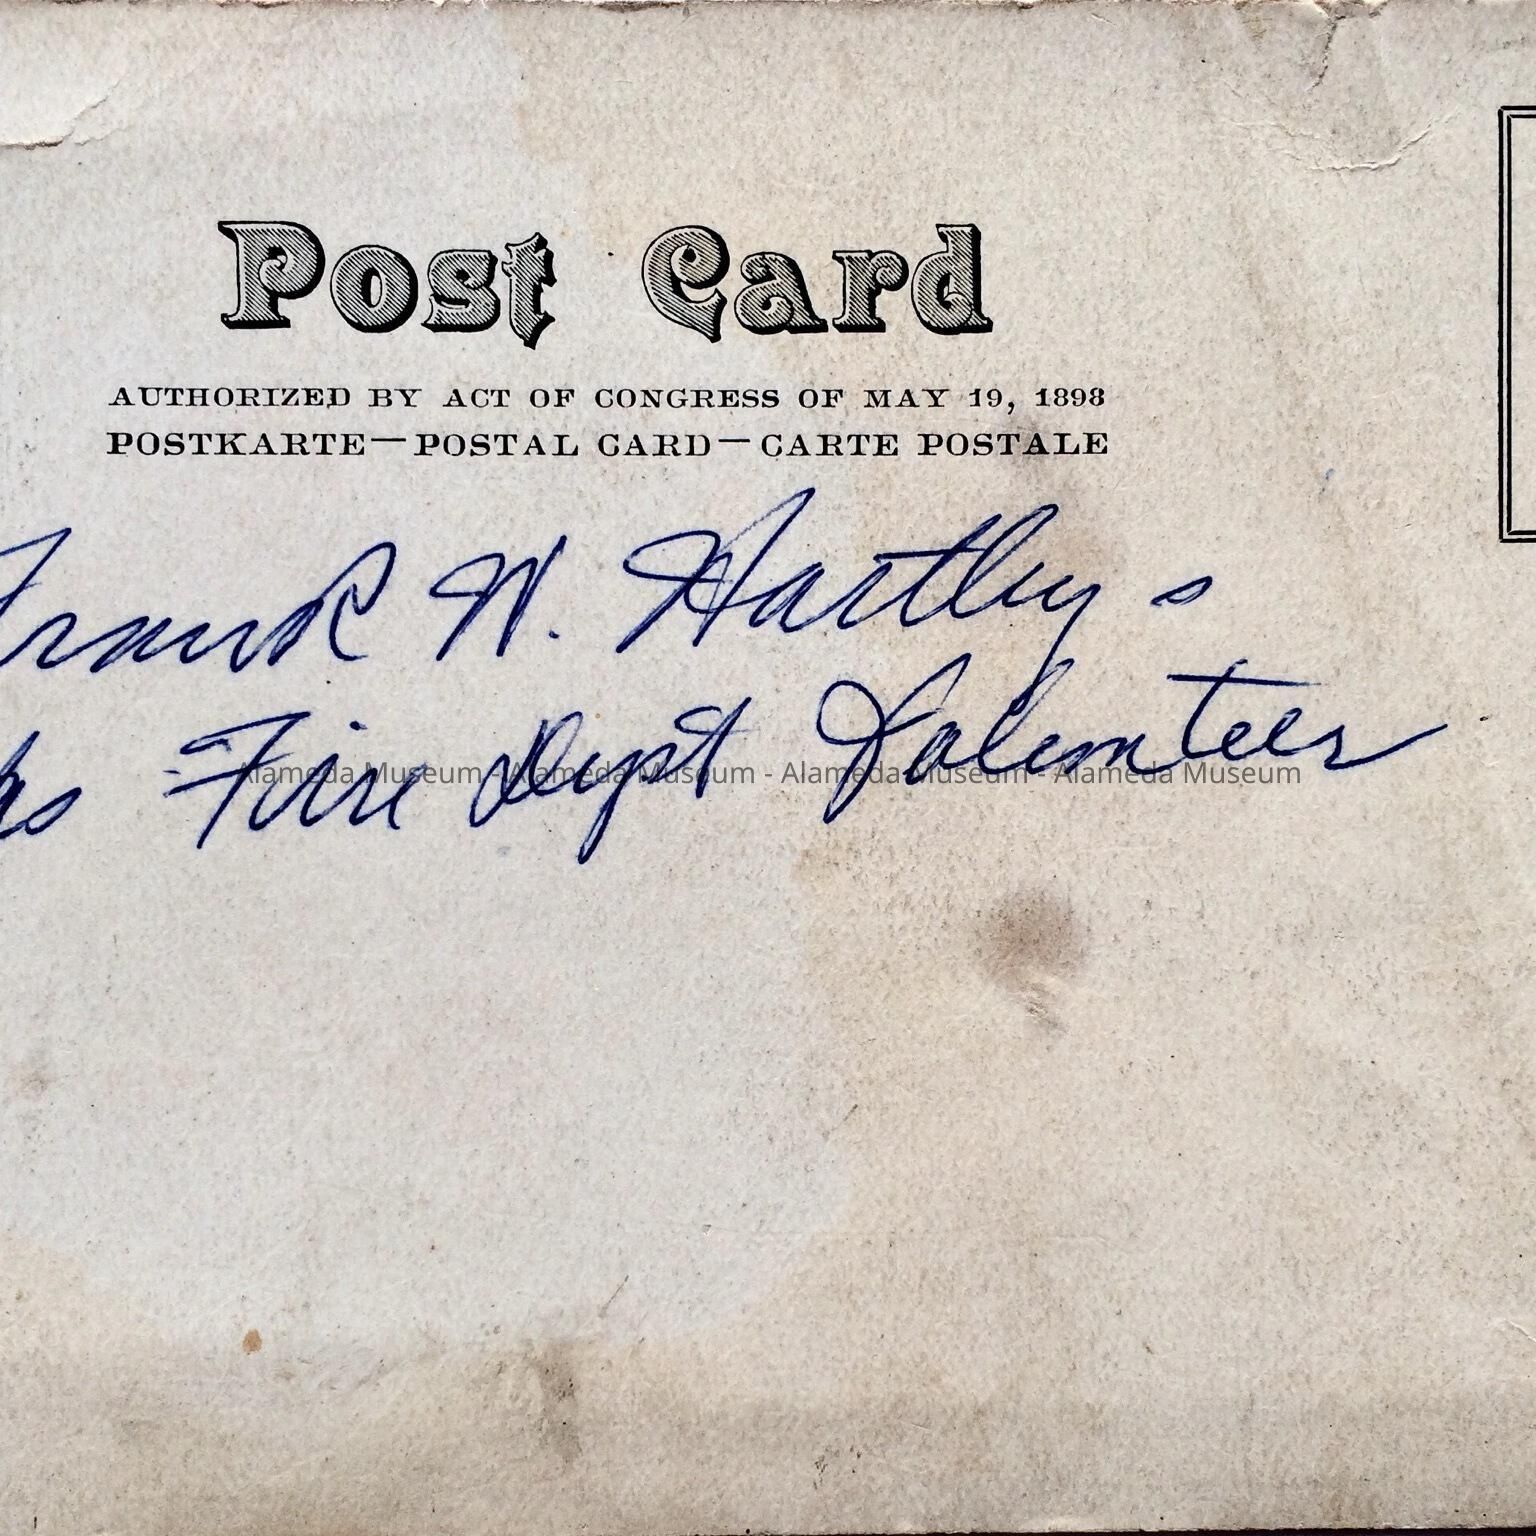 Post Card
AUTHORIZED BY ACT OF CONGRESS OF MAY 19, 1898
POSTKARTE—POSTAL CARD—CARTE POSTALE
Frank W. Hartley s
Fire Dept Volenteer
Alameda Museum - Alameda Museum - Alameda Museum - Alameda Museum